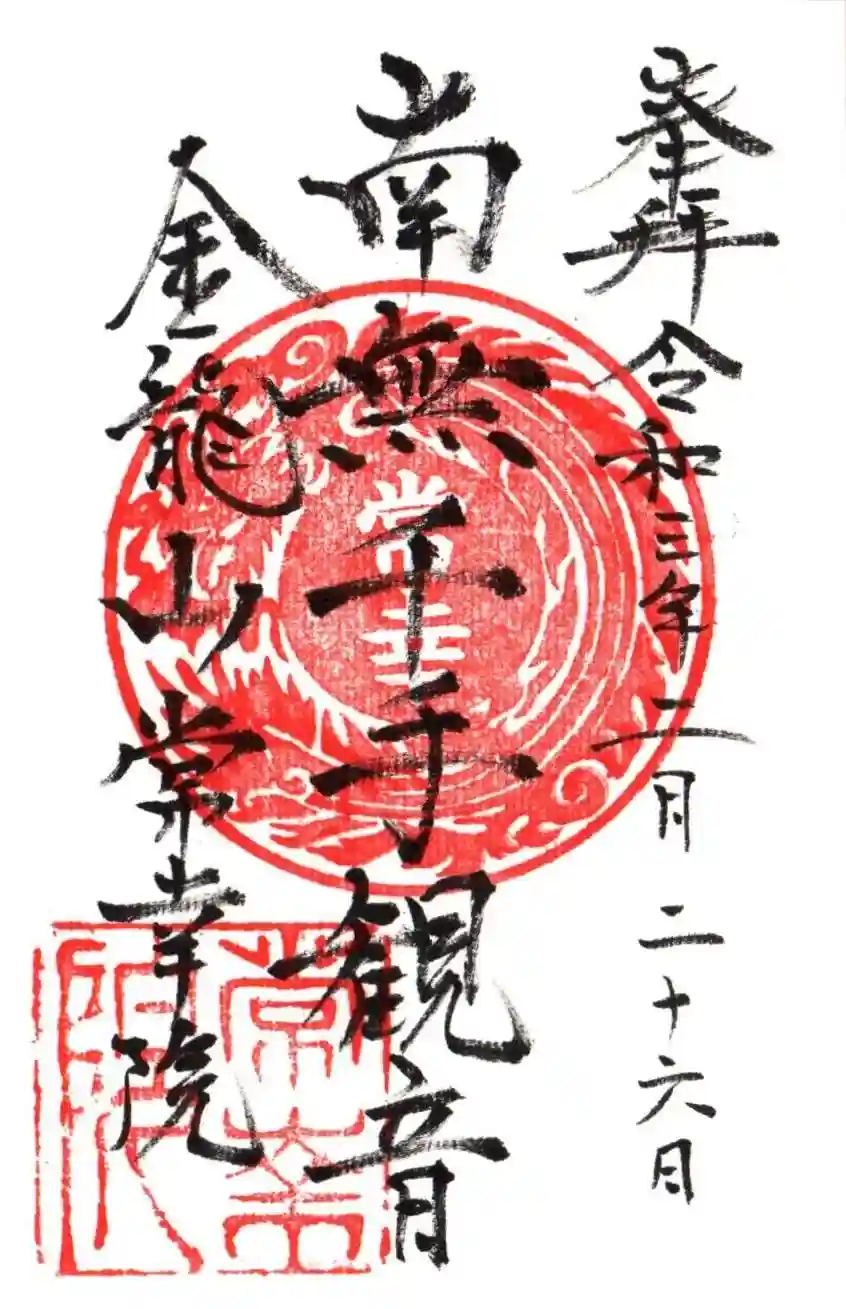 奉拝 令和三年二月二十六日
南無千手観音
金龍山常幸院
常幸
常幸院